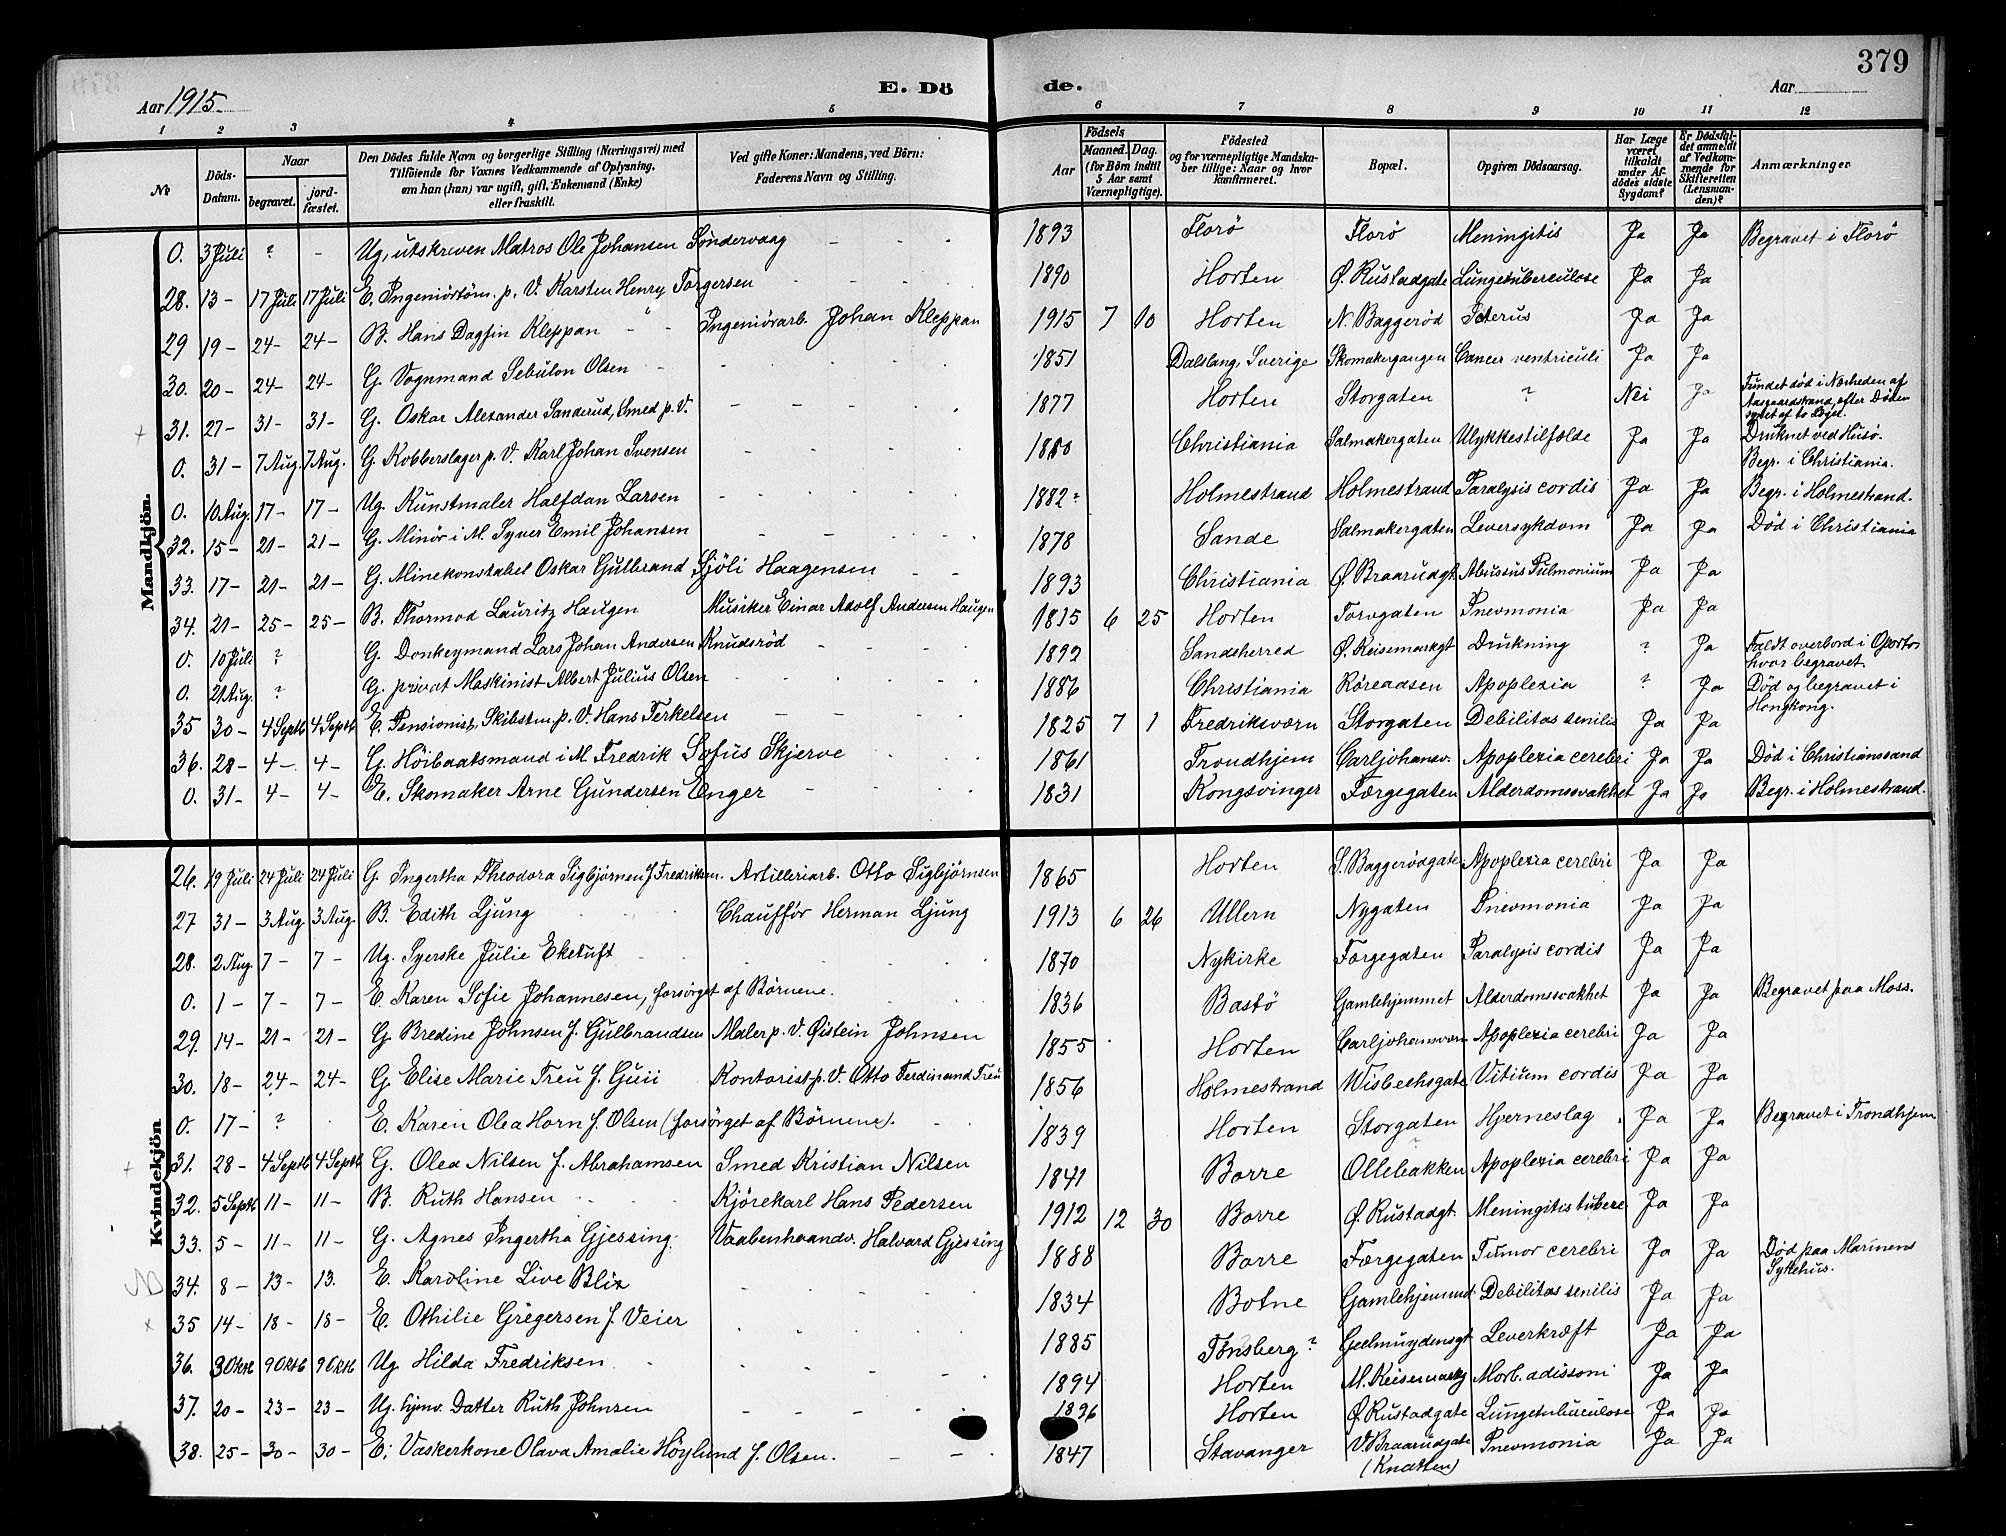 379
Aar 1915. E. Dö de. Aar
1 2 3 4 5 6 7 8 9 10 11 12
No Döds-Datum. Naar begravet. jord-fæstet. Den Dödes fulde Navn og borgerlige Stilling (Næringsvei) med Tilföiende for Voxnes Vedkommende af Oplysning, om han (hun) var ugift, gift, Enkemand (Enke) eller fraskilt. Ved gifte Koner: Mandens, ved Börn: Faderens Navn og Stilling. Födsels Aar Maaned. Dag. (for Börn indtil 5 Aar samt Værnepligtige). Födested og for værnepligtige Mandska-ber tillige: Naar og hvor Konfirmeret. Bopæl. Opgiven Dödsaarsag. Har Læge været tilkaldt under Af-dödes sidste Sygdom? Er Dödsfal-det anmeldt af Vedkom-mende for Skifteretten (Lensman-den)? Anmærkninger
Mandkjön.
0. 3 Juli ? - Ug, utskreven Matros Ole Johansen Söndervaag - - - 1893 Florø Florø Meningitis Ja Ja Begravet i Florø
28. 13 - 17 Juli 17 Juli E. Ingeniörtöm. p. V. Karsten Henry Torgersen 1890 Horten Ø. Rustadgate Lungetuberculose Ja Ja
29 19 - 24 - 24 - B. Hans Dagfin Kleppan Ingeniörarb. Johan Kleppan 1915 7 10 Horten N. Baggerød Icterus Ja Ja
30. 20 - 24 - 24 - G. Vognmand Sebulon Olsen 1851 Dalslang, Sverige Skomakergangen Cancer ventriculi Ja Ja
31. 27 - 31 - 31 - G. Oskar Alexander Sanderud, Smed p. V. 1877 Horten Storgaten ? Nei Ja Fundet død i Nærheden af Aasgaardstrand, efter Döden synet af to Læger.
0. 31 - 7 Aug. 7 Aug. G. Kobberslager p. V. Karl Johan Svensen 1880 Christiania Salmakergaten Ulykkestilfælde Ja Ja Druknet ved Husø. Begr. i Christiania.
0. 10 Aug. 17 - 17 - Ug. Kunstmaler Halfdan Larsen 1882 Holmestrand Holmestrand Paralysis cordis Ja Ja Begr. i Holmestrand.
32. 15 - 21 - 21 - G. Minör i M. Syver Emil Johansen 1878 Sande Salmakergaten Leversykdom Ja Ja Död i Christiania
33. 17 - 21 - 21 - G. Minekonstabel Oskar Gulbrand Sjöli Haagensen 1893 Christiania Ø. Braarudgt. Abustus Pulmonium Ja Ja
34. 21 - 25 - 25 - B. Thormod Lauritz Haugen Musiker Einar Adolf Andersen Haugen 1815 6 25 Horten Torvgaten Pnevmonia Ja Ja
0. 10 Juli ? G. Donkeymand Lars Johan Andersen Knudsrød 1892 Sandsherred Ø. Keisemarkgt Drukning ? Ja Faldt overbord i Oporto hvor begravet.
0. 21 Aug. ? G. privat Maskinist Albert Julius Olsen 1886 Christiania Røreadsen Apoplexia ? Ja Død og begravet i Hongkong.
35 30 - 4 Septb 4 Septb E. Pensionist, Skibstm. p. V. Hans Terkelsen 1825 7 1 Fredriksværn Storgaten Debilitas senilis Ja Ja
36. 28 - 4 - 4 - G. Höibaatsmand i M. Fredrik Sofus Skjerve 1861 Trondhjem Carljohansv. Apoplexia cerebri Ja Ja Död i Christianssand
0. 31 - 4 - 4 - E. Skomaker Arne Gundersen Enger 1831 Kongsvinger Færgegaten Alderdomssvakhet Ja Ja Begr. i Holmestrand.
Kvindekjön
26. 19 Juli 24 Juli 24 Juli G. Ingertha Theodora Sigbjørnsen f. Fredriksen. Artilleriarb. Otto Sigbjørnsen 1865 Horten S. Baggerödgate Apoplexia cerebri Ja Ja
27 31 - 3 Aug. 3 Aug. B. Edith Ljung Chaufför Herman Ljung 1913 6 26 Ullern Nygaten Pnevmonia Ja Ja
28. 2 Aug. 7 - 7 - Ug. Syerske Julie Eketuft 1870 Nykirke Færgegaten Paralysis cordis Ja Ja
0. 1 - 7 - 7 - E. Karen Sofie Johannesen, forsörget af Börnene. 1836 Bastö Gamlehjemmet Alderdomssvakhet Ja Ja Begravet paa Moss.
29. 14 - 21 - 21 - G. Bredine Johnsen f. Gulbrandsen Maler p. V. Øistein Johnsen 1855 Horten Carljohansværn Apoplexia cerebri Ja Ja
30. 18 - 24 - 24 - G. Elise Marie Treu f. Guii Kontorist p. V. Otto Ferdinand Treu 1856 Holmestrand Wisbechsgate Vitium cordis Ja Ja
0. 17 - ? E. Karen Olea Horn f. Olsen (forsörget af Börnene). 1839 Horten Storgaten Hjerneslag Ja Ja Begravet i Trondhjem
31. 28 - 4 Septb 4 Septb G. Olea Nilsen f. Abrahamsen Smed Kristian Nilsen 1841 Borre Ollebakken Apoplexia cerebri Ja Ja
32. 5 Septb 11 - 11 - B. Ruth Hansen Kjörekarl Hans Pedersen 1912 12 30 Borre Ø. Rustadgt. Meningitis tuberc Ja Ja
33. 5 - 11 - 11 - G. Agnes Ingertha Gjessing Vaabenhaandv. Halvard Gjessing 1888 Borre Færgegaten Tumor cerebri Ja Ja Död paa Marinens Sykehus.
NB 34. 8 - 13 - 13. E. Karoline Live Blix 1834 Botne Gamlehjemmet Debilitas senilis Ja Ja
35 14 - 18 - 18 - E. Othilie Gregersen f. Veier 1885 Tønsberg ? Geelmuydensgt Leverkræft Ja Ja
36. 3 Oktb 9 Oktb 9 Oktb Ug. Hilda Fredriksen 1894 Horten M. Keisemarkg Morb. adissoni Ja Ja
37. 20 - 23 - 23 - Ug. hjmv. Datter Ruth Johnsen 1896 Horten Ø. Rustadgate Lungetuberculose Ja Ja
38. 25 - 30 - 30 - E. Vaskerkone Olava Amalie Höylund f. Olsen. 1847 Stavanger V. Braarudgate (Knatten) Pnevmonia Ja Ja